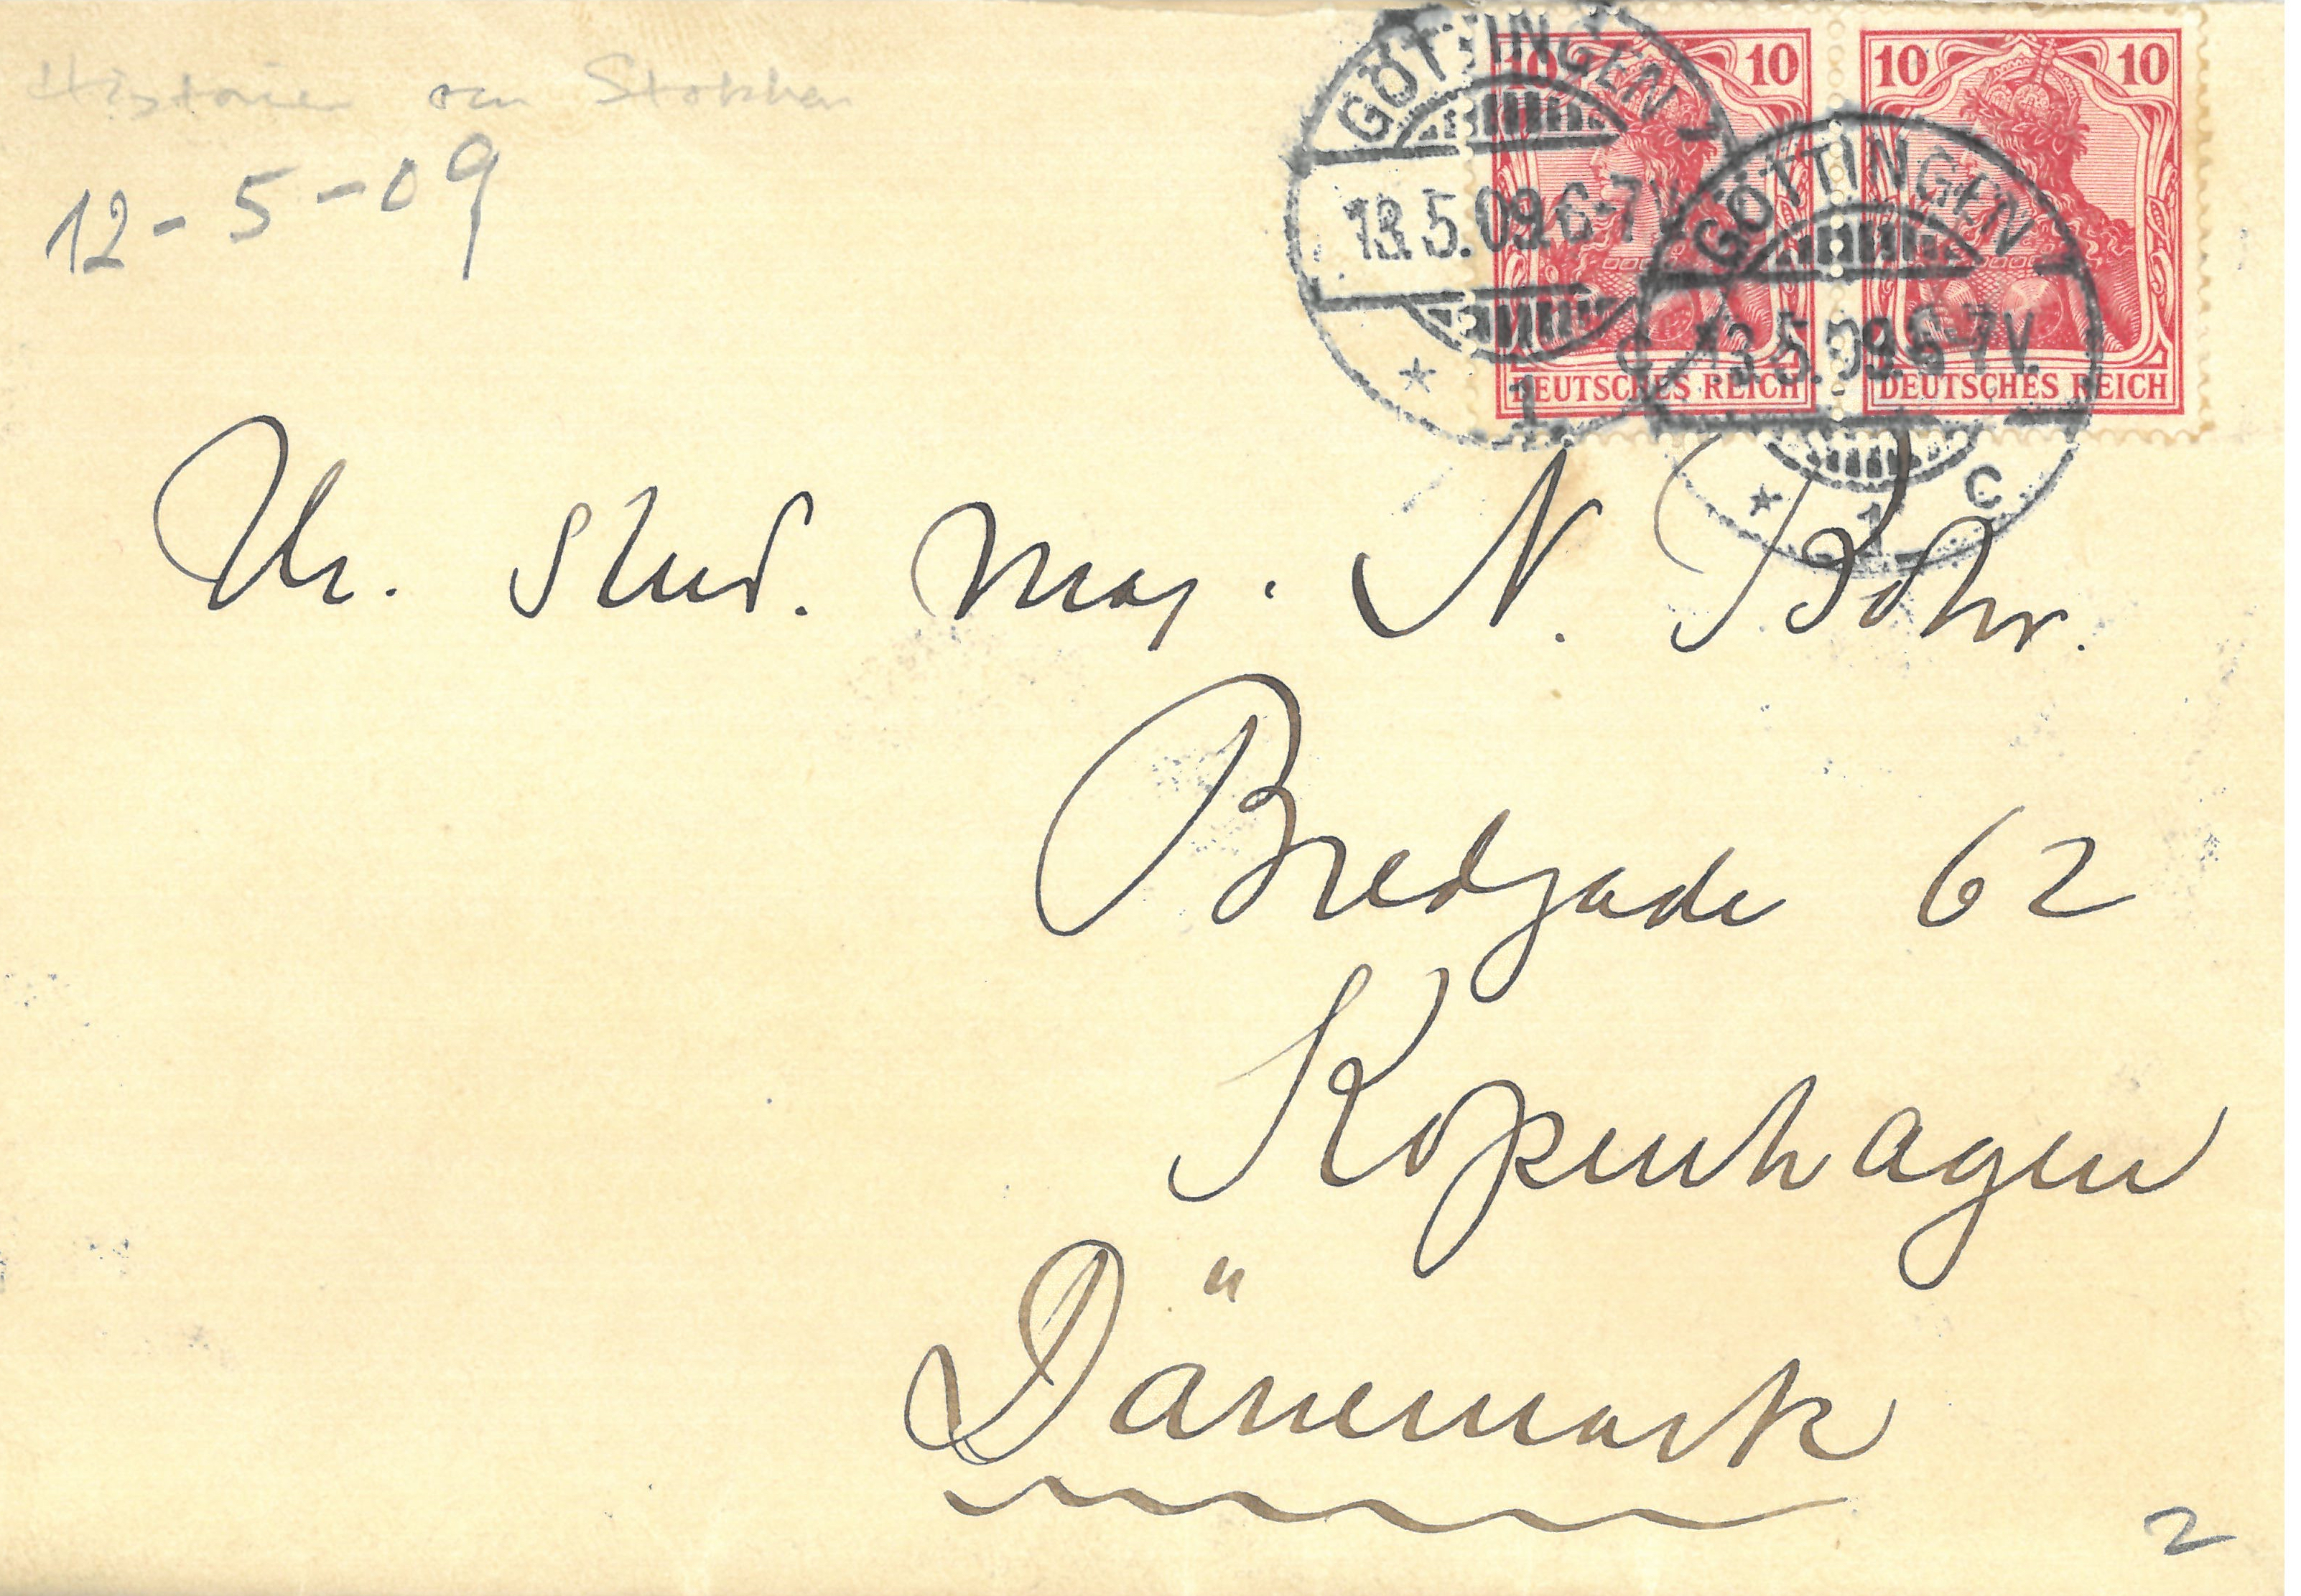 Historien om Stokken
12-5-09
GÖTTINGEN
13.5.09.6-7V.
* 1 C
GÖTTINGEN
13.5.09.6-7V.
* 1 C
10 10
DEUTSCHES REICH
10 10
DEUTSCHES REICH
Hr. stud. mag. N. Bohr.
Bredgade 62
Kopenhagen
Dänemark
2